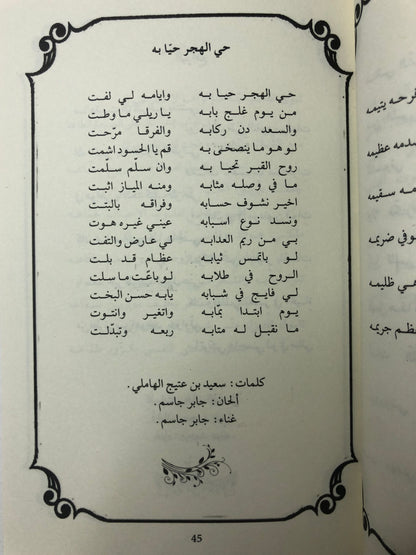 حي الهجر حيّا به
حي الهجر حيا به وايامه لي لفت
من يوم غلج بابه يا ريلي ما وطت
والسعد دن ركابه والفرقا مرّحت
لو هو ما ينصخى به قم يا الحسود اشمت
روح القبر تحيا به وان سلّم سلمت
ما في وصله مثابه ومنه المياز اثبت
اخير نشوف حسابه وفراقه بالبتت
ونسد نوع اسبابه عيني غيره هوت
بي من ريم العدابه لي عارض والتفت
لو باتمس ثيابه عظام قد بلت
الروح في طلابه لو باعت ما سلت
لي فايج في شبابه يابه حسن البخت
يوم ابتدا بمّابه واتغير وانتوت
ما نقبل له متابه ربعه وتبدلّت
كلمات: سعيد بن عتيج الهاملي.
ألحان: جابر جاسم.
غناء: جابر جاسم.
45
فرحه يتيمه
صدمه عظيمه
مه سقيمه
وفي ضريمه
هي ظليمه
عظم جريمه